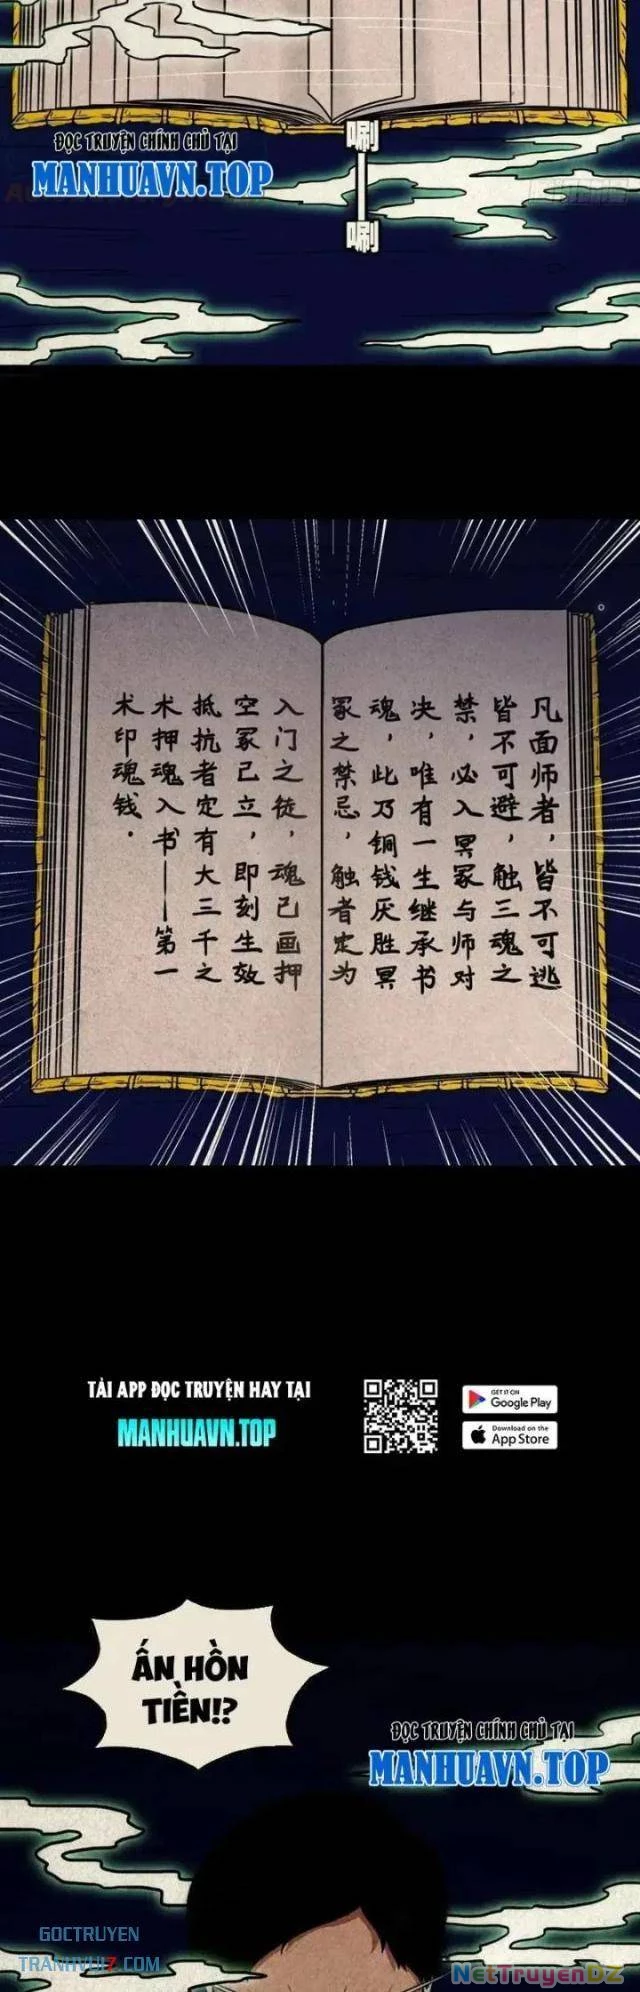 ĐỌC TRUYỆN CHÍNH CHỦ TẠI
MANHUAVN.TOP
唰
唰
凡面师者，皆不可逃
皆不可避，触三魂之
禁，必入冥冢与师对
决，唯有一生继承书
魂，此乃铜钱厌胜冥
冢之禁忌，触者定为
入门之徒，魂已画押
空冢已立，即刻生效
抵抗者定有大三千之
术押魂入书——第一
术印魂钱．
TẢI APP ĐỌC TRUYỆN HAY TẠI
MANHUAVN.TOP
GET IT ON
Google Play
Download on the
App Store
ẤN HỒN
TIỀN!?
ĐỌC TRUYỆN CHÍNH CHỦ TẠI
MANHUAVN.TOP
GOCTRUYEN
TRANHVUI7.COM
NetTruyenDZ